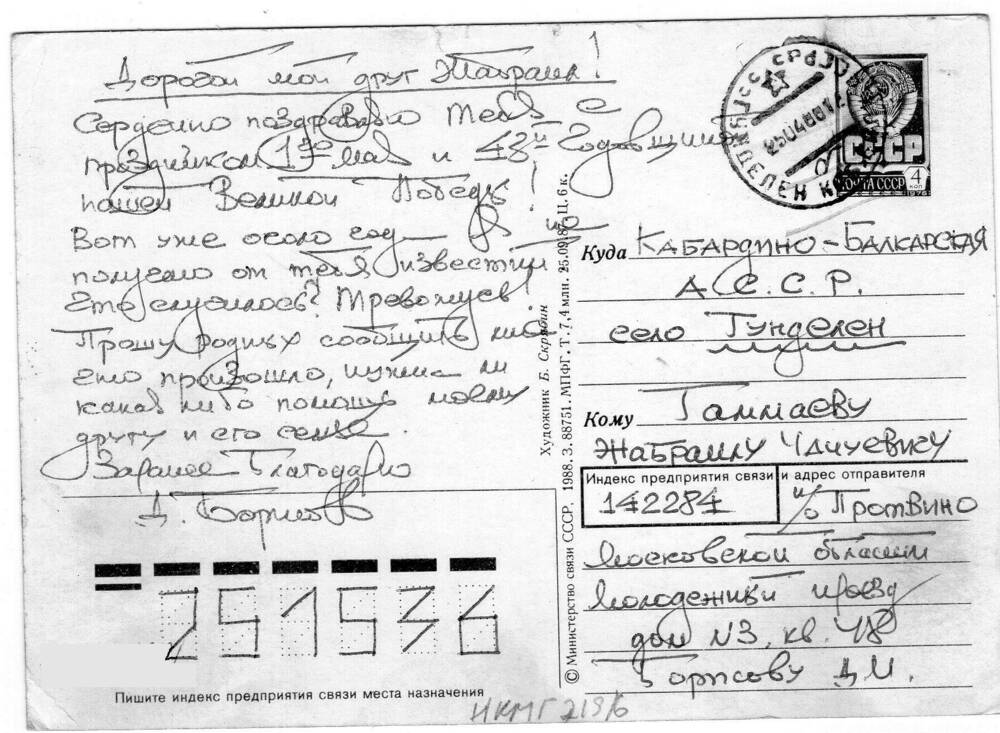 Дорогой мой друг Жабраил!
Сердечно поздравляю тебя с
праздником 1го мая и 43й Годовщиной
нашей Великой Победы!
Вот уже около году я не
получаю от тебя известий
Что случилось? Тревожусь!
Прошу родных сообщить мне
что произошло, нужна ли
какая либо помощь моему
другу и его семье.
Заранее Благодарю
Д. Борисов
251536
Пишите индекс предприятия связи места назначения
© Министерство связи СССР. 1988. З. 88751. МПФГ. Т. 7,4 млн. 25.09.87. Ц. 6 к.
Художник Б. Скрябин
СССР
ПОЧТА СССР
4 коп
Куда Кабардино-Балкарская
А С.С.Р.
село Гунделен
Кому Гаммаеву
Жабраилу
Индекс предприятия связи и адрес отправителя
142284 п/о Протвино
Московской области
Молодежный проезд
дом №3, кв. 48
Борисову Д.И.
НКМГ 219/6